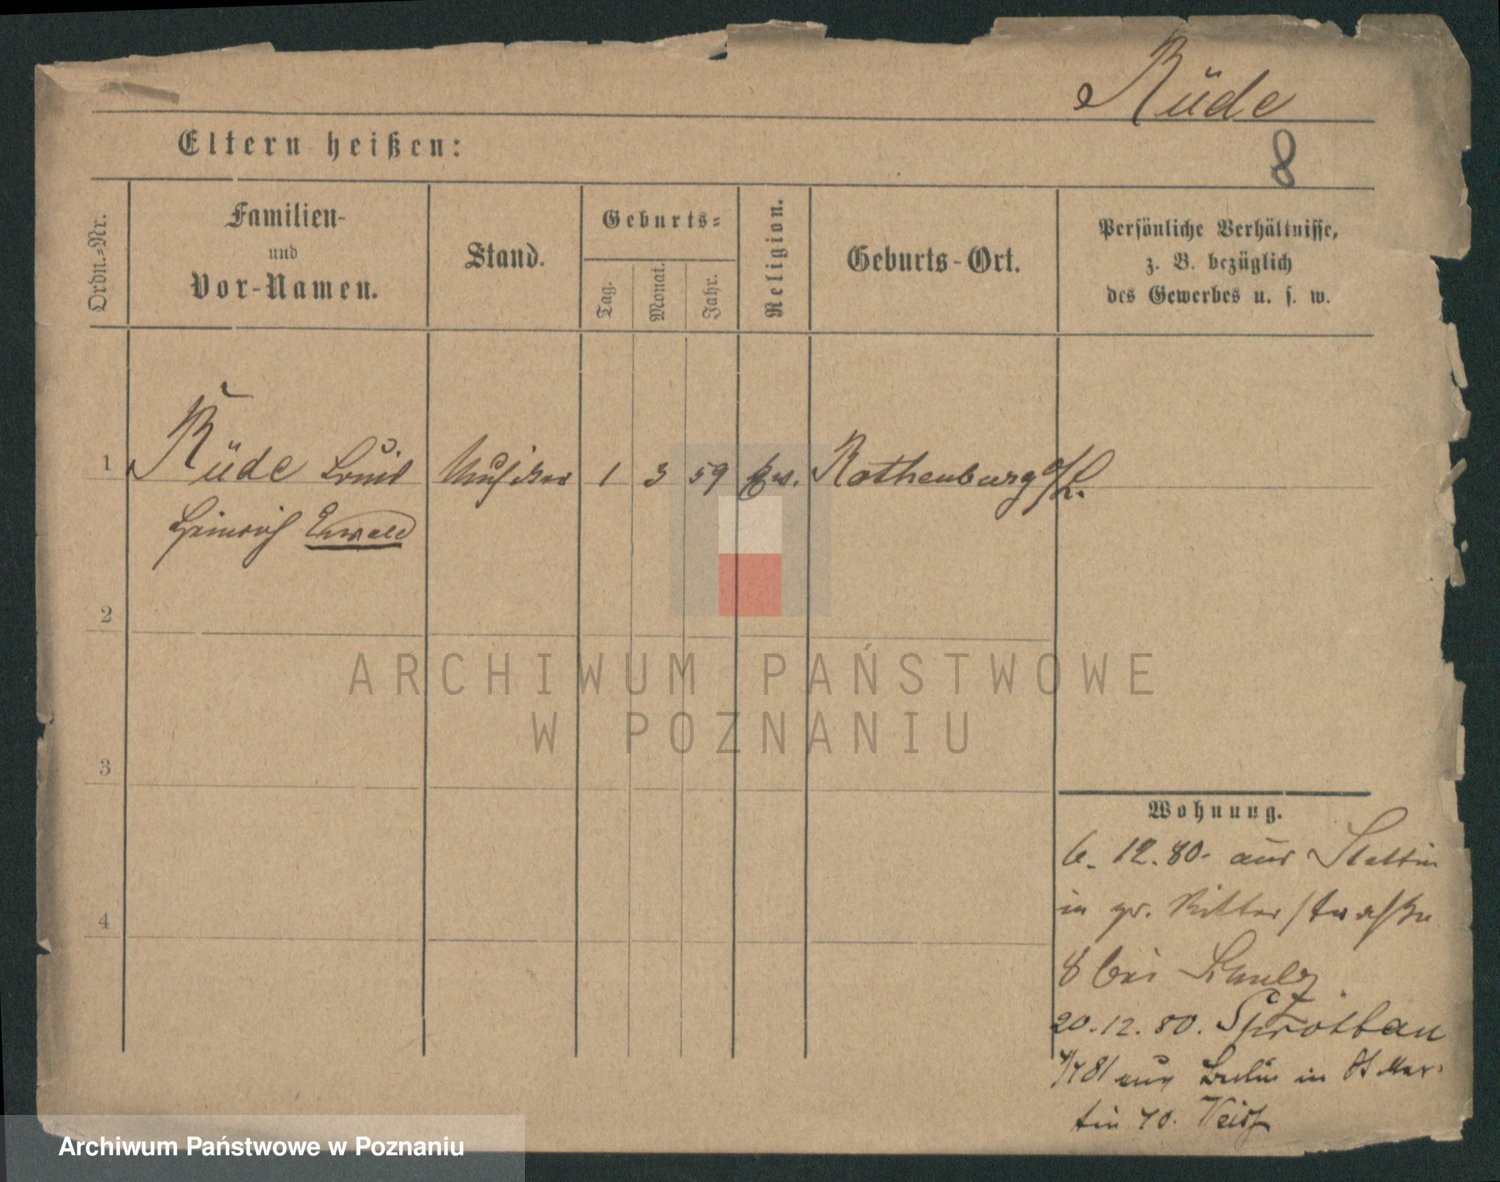 Rüde
Eltern heißen:
8
Ordn.-Nr.
Familien-
und
Vor-Namen.
Stand.
Geburts-
Tag.
Monat.
Jahr.
Religion.
Geburts-Ort.
Persönliche Verhältnisse,
z. B. bezüglich
des Gewerbes u. s. w.
1 Rüde Musiker 1 3 59 Rothenburg o/L.
Heinrich Ewald
2
3
4
ARCHIWUM PAŃSTWOWE
W POZNANIU
Wohnung.
6. 12. 80. aus Stettin
in gr. Ritterstraße
8 bei Schulz
20. 12. 80. Sprottau
81 aus Berlin in St. Mar-
tin 70.
Archiwum Państwowe w Poznaniu